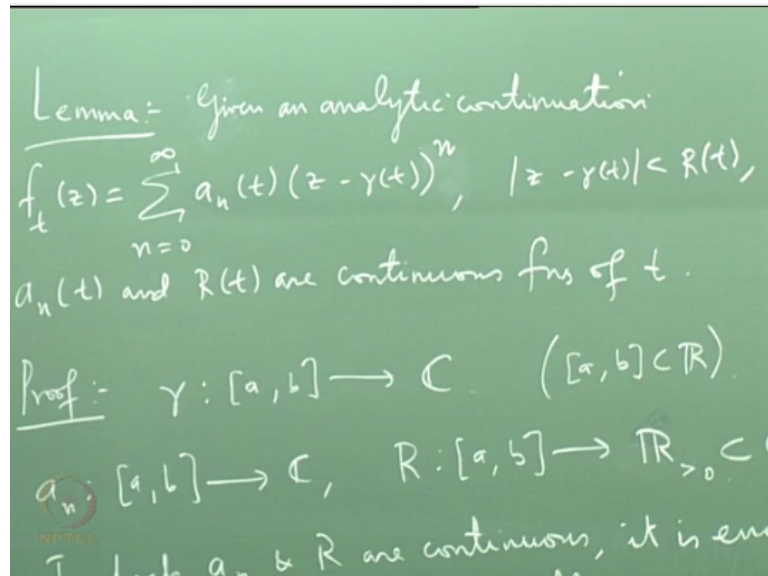 Lemma:- Given an analytic continuation
f_t(z) = ∑_{n=0}^{∞} a_n(t) (z - γ(t))^n, |z - γ(t)| < R(t),
a_n(t) and R(t) are continuous fns of t.
Proof:- γ : [a, b] → ℂ ([a, b] ⊂ ℝ).
a_n : [a, b] → ℂ, R : [a, b] → ℝ_{>0} ⊂
NPTEL
a_n & R are continuous, it is